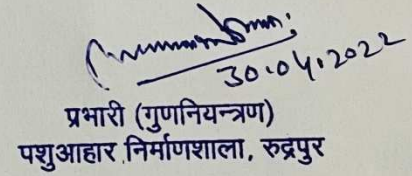 30.04.2022
प्रभारी (गुणनियन्त्रण)
पशुआहार निर्माणशाला, रुद्रपुर